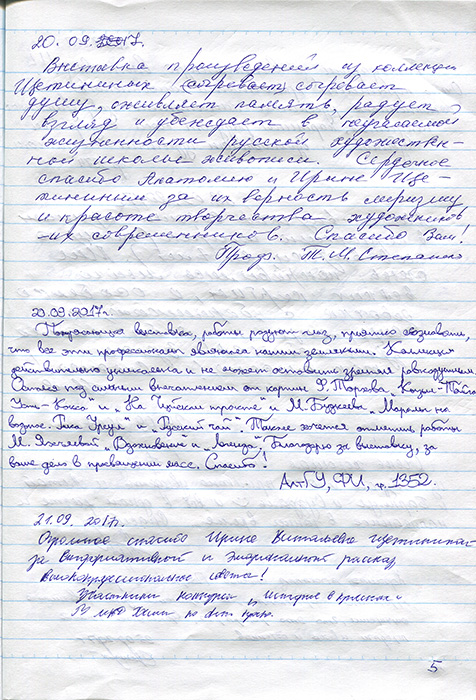 20.09.2017.
Выставка произведений из коллекции
Щетининых (согревает) согревает
душу, оживляет память, радует
взгляд и убеждает в неугасаемой
жизненности русской художествен-
ной школы живописи. Сердечное
спасибо Анатолию и Ирине Ще-
тининым за их верность
и красоте творчества художников
-их современников. Спасибо Вам!
Проф. Т.М. Степанская
20.09.2017г.
Потрясающая выставка, работы радуют глаз, приятно осознавать,
что все эти профессионалы являются нашими земляками. Коллекция
действительно уникальна и не может оставить зрителя равнодушным.
Остался под сильным впечатлением от картин Ф. Торхова "
Усть-Кокса" и "На Чуйском тракте" и М. Будкеева "Маралы на
водопое. Река Урсул" и "Русский чай". Также хочется отметить работы
М. "Вдохновение" и "". Благодарю за выставку, за
ваше дело в просвещении масс. Спасибо!
АлтГУ, ФИ, гр. 1352.
21.09.2017г.
Огромное спасибо Ирине Витальевне Щетининой
за и эмоциональный рассказ,
Высокопрофессиональные
Участники конкурса "История в
по Алт. краю.
5